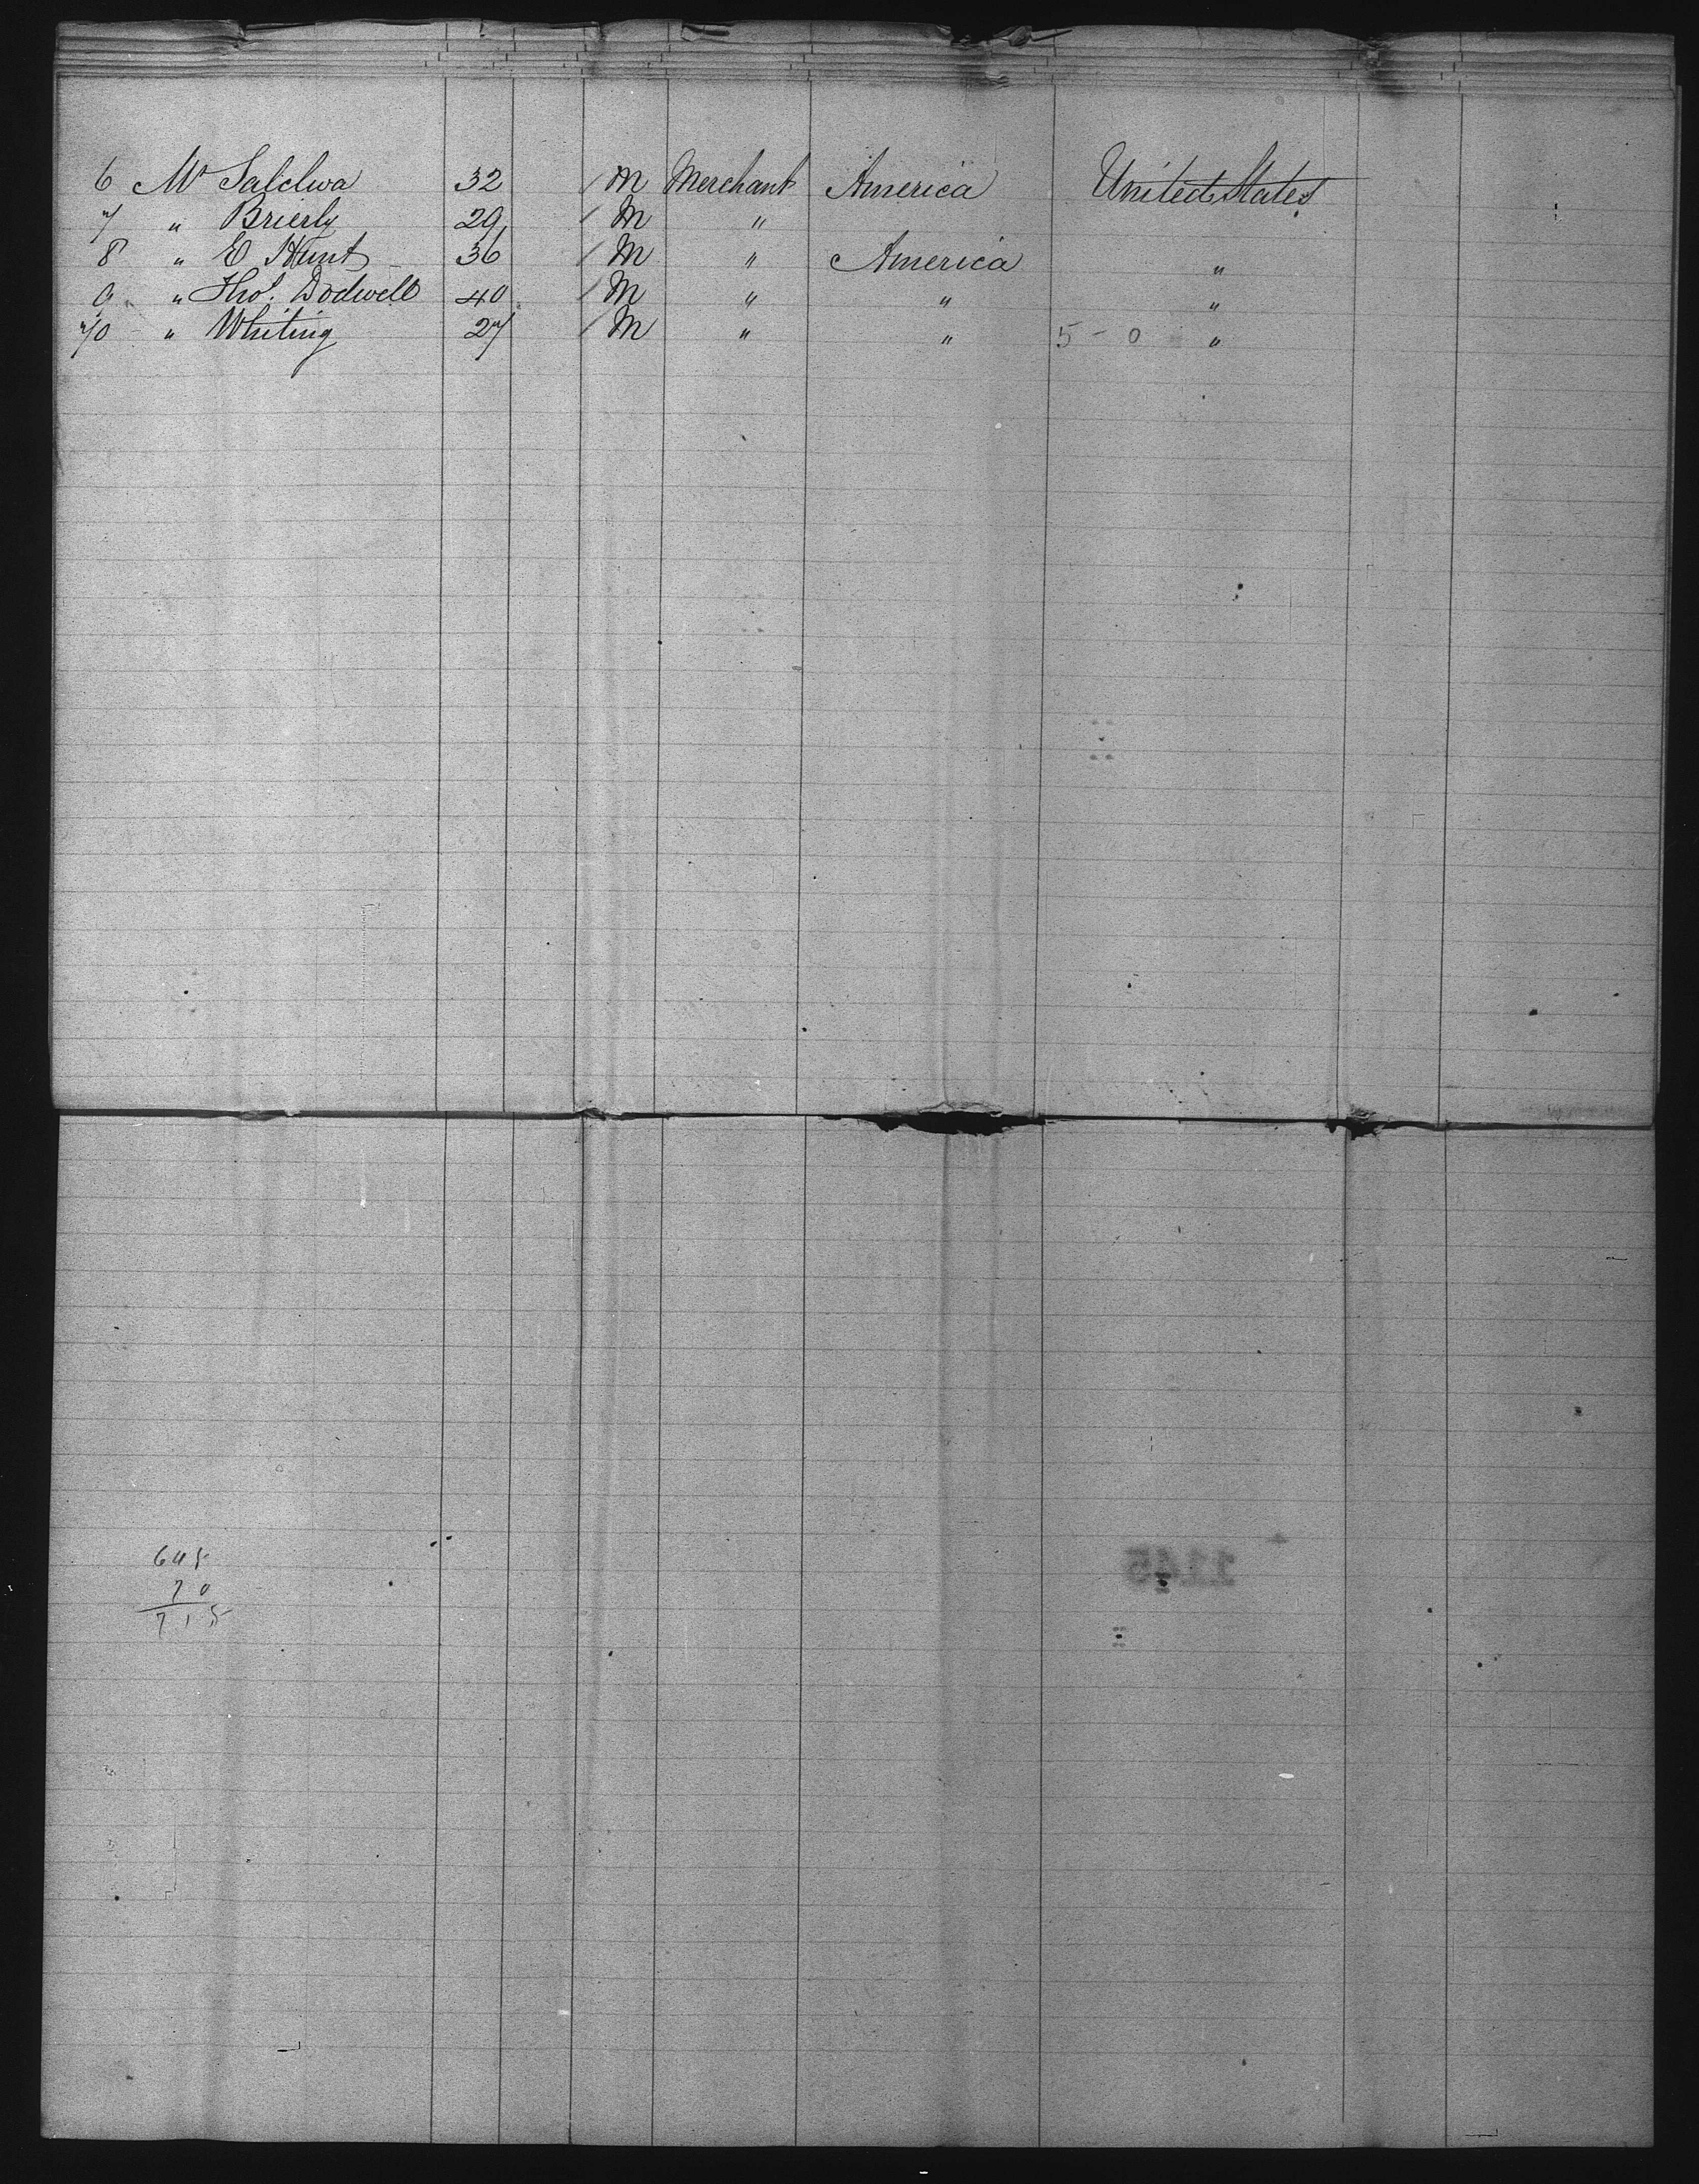 6 Mr Salelwa 32 / M Merchant America United States
7 " Brierly 29 / M "
8 " E Hunt 36 / M " America "
9 " Thos. Dodwell 40 / M " " "
70 " Whiting 27 / M " " 5 - 0 "
645
70
715
1145